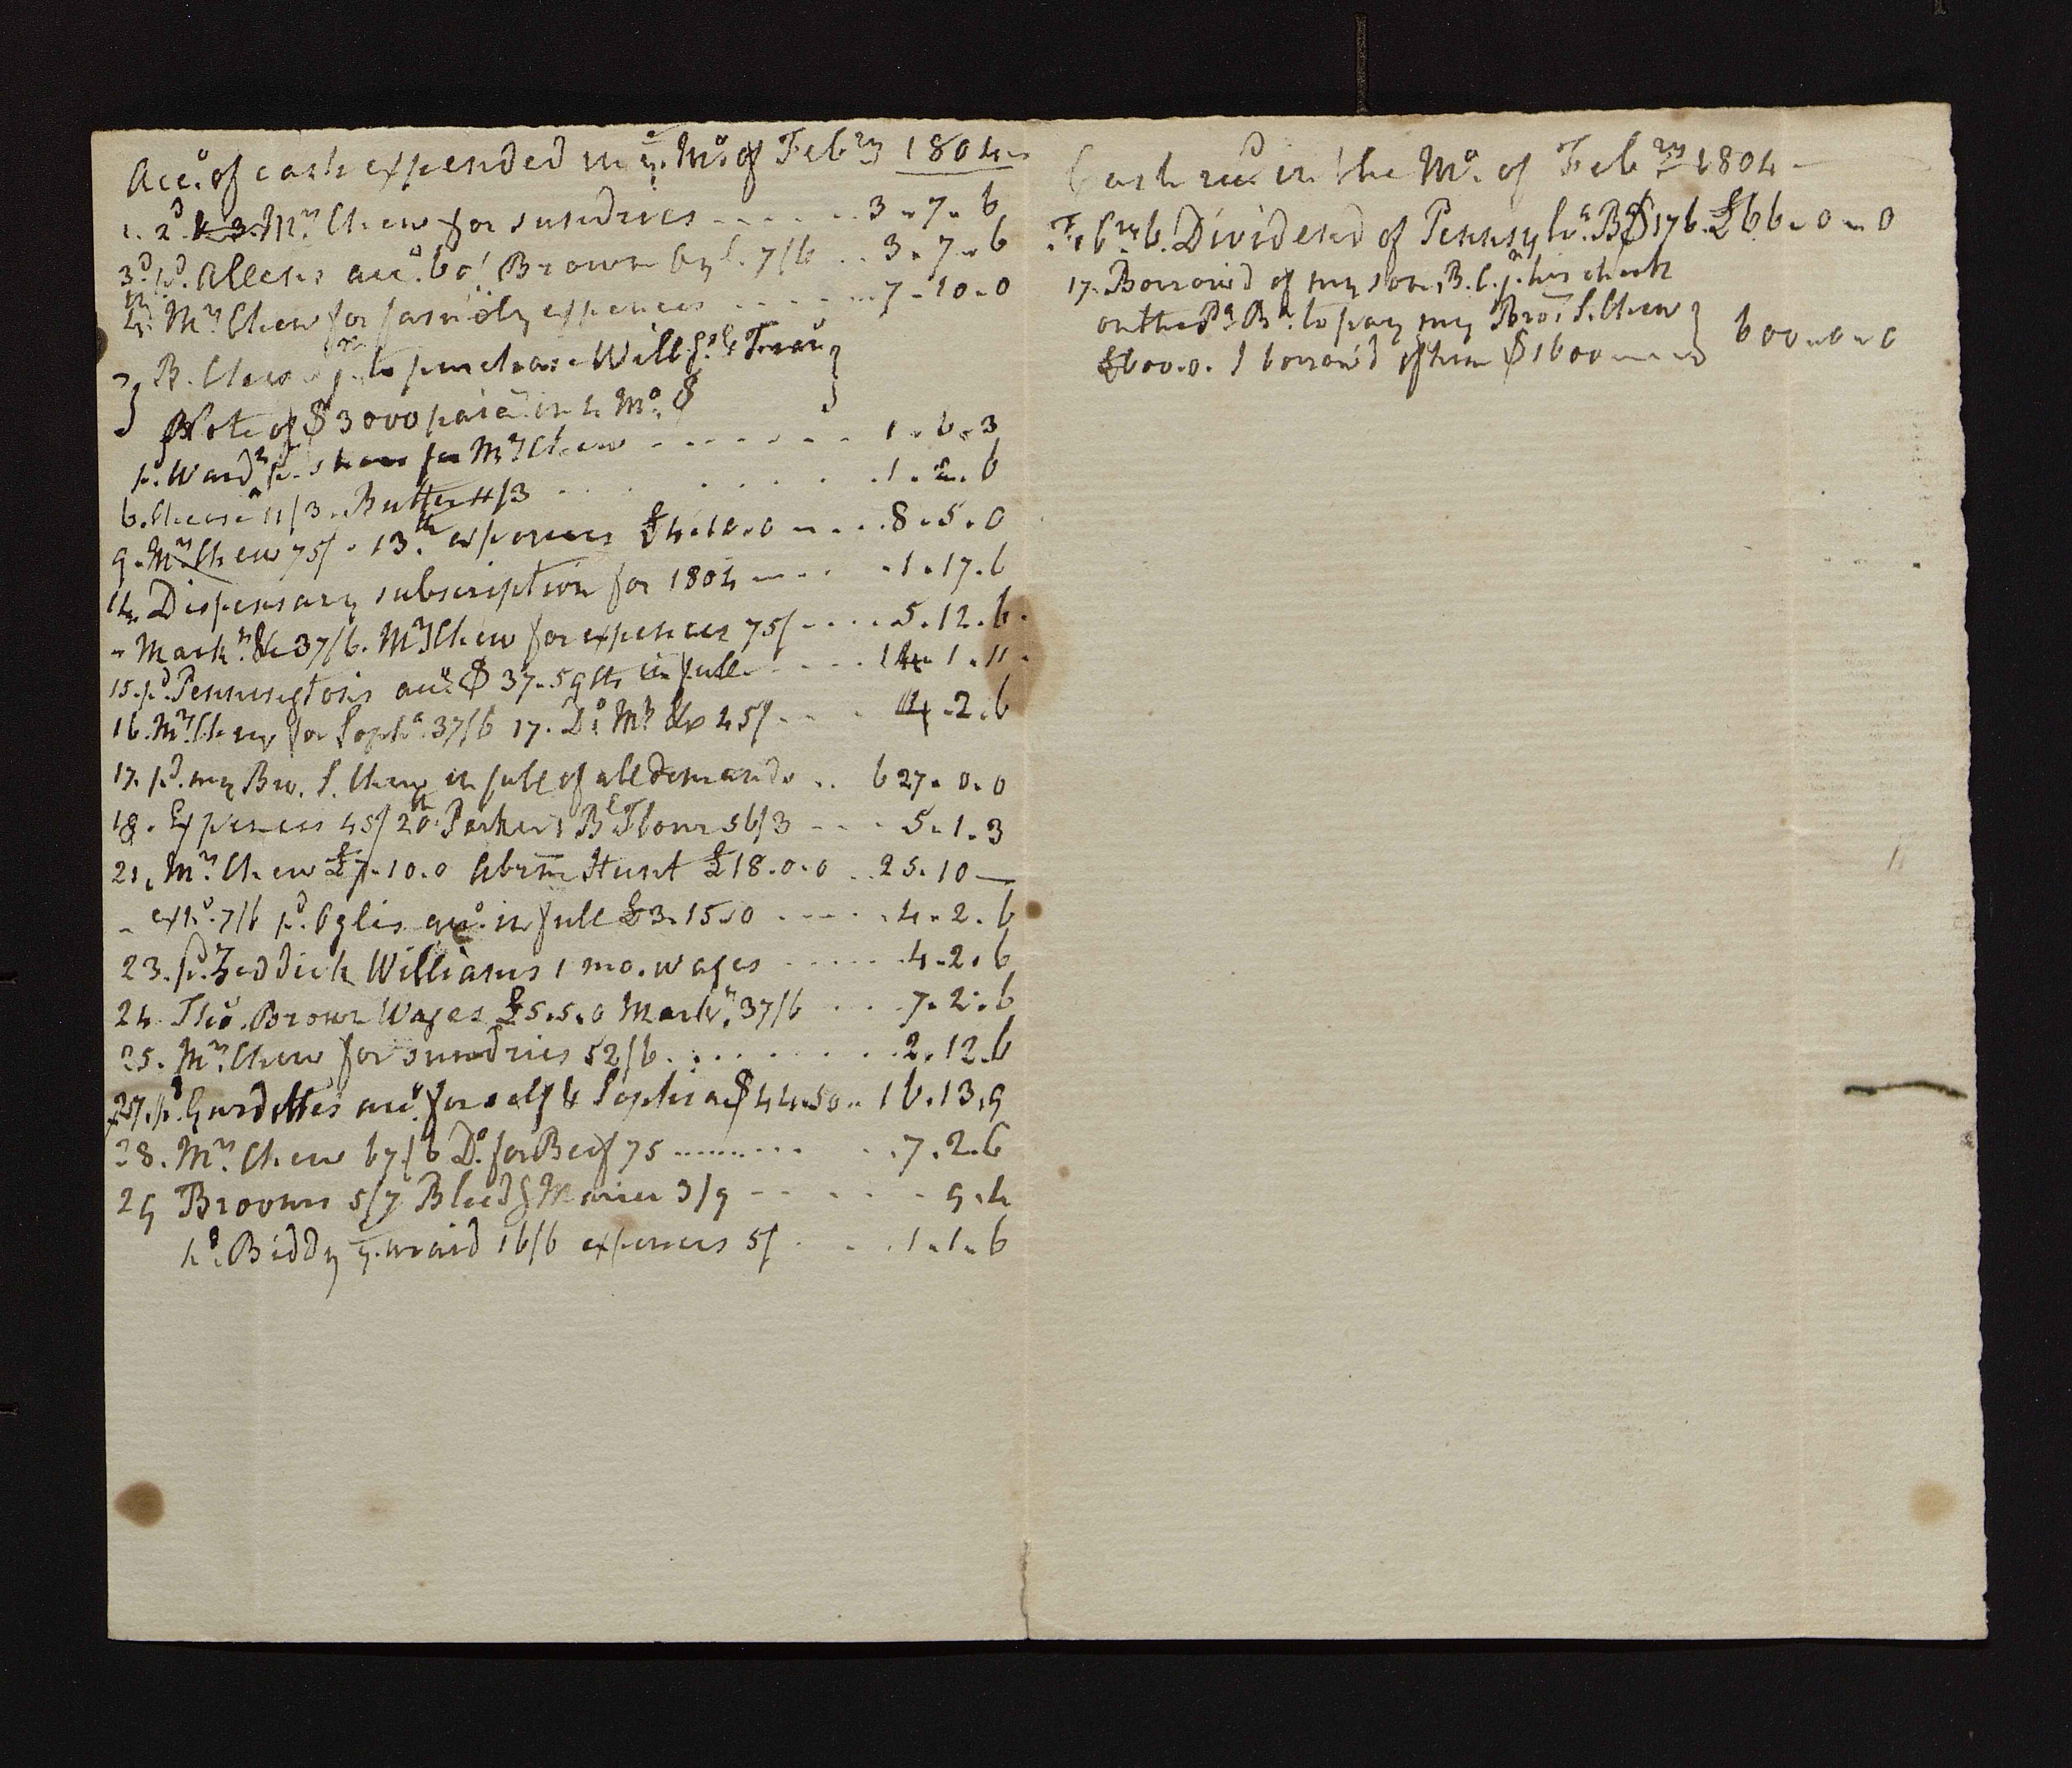 Acco. of cash expended in ye. Mo. of Febry 1804
1. 2d. & 3. Mrs. Chew for sundries 3.7.6
3d. pd. Allens acco. 60/ Brown 7/6 3.7.6
4. Mrs. Chew for family expences 7.10.0
B. Chew jr. to purchase Will
Note of $3000 paid in Mo. $
pd. Ward Mrs. Chew 1.6.3
6. Cheese 11/3. Butter 11/3 1.2.6
9. Mrs. Chew 75/. 13th. expences £4.10.0 8.5.0
14. Dispensary subscription for 1804 1.17.6
- Markn. &c 37/6. Mrs. Chew for expences 75/ 5.12.6
15. pd. Penningtons acco. $ 37.59 in full 14.1.11
16. Mrs. Chew for Sopha. 37/6 17. Do. Mrs. &c 45/ 4.2.6
17. pd. my Bro. S. Chew in full of all demands 627.0.0
18. Expences 45/ 20th. Parkers Bl Flour 56/3 5.1.3
21. Mrs. Chew £7.10.0 Abrm Hunt £18.0.0 25.10
- 7/6 pd. Oglis acco. in full £3.15.0 4.2.6
23. pd. Zeddick Williams 1 mo. wages 4.2.6
24 Tho. Brown Wages £5.5.0 Markn. 37/6 7.2.6
25. Mrs. Chew for sundries 52/6 2.12.6
27. pd. Gardettes acco. for self & Sophia $44.50 16.13.9
28. Mrs. Chew 67/6 Do. for Beef 75 7.2.6
29 Brooms 5/7 3/9 9.4
pd. Biddy 16/6 expences 5/ 1.1.6
Cash recd in the Mo. of Febry 1804
Febry 6. Dividend of Pennsylva. B $176. £66.0.0
17. Borrow'd of my son, B. C. jr. his check
on the Pa Ba. to pay my Bror S. Chew
£600.0. I borrow'd of him $1600 600.0.0